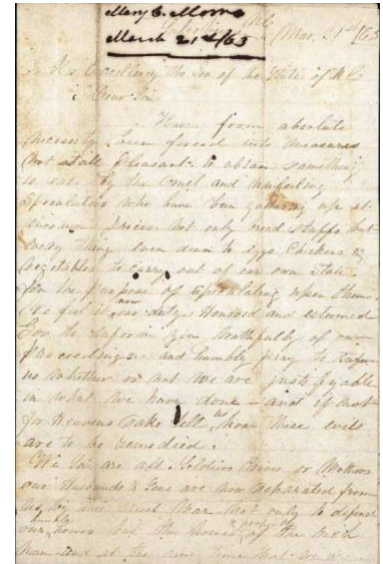 Mary C. Moore
March 21st/65
Mar. 21st 65
To His Excellency the Gov of the State of N.C
Dear Sir
Have from absolute
necessity been forced into measures
not at all pleasant to obtain something
to eat. by the cruel and unfeeling
Speculators who have been gathering up at
prices not only bread stuffs but
every thing even down to eggs Chickens &
vegetables to carry out of our own State
for the purpose of Speculating upon them.
We feel it now our duty Honored and esteemed
Gov to inform you truthfully of our
proceedings and humbly pray to inform
us whether or not we are justifyable
in what we have done — and if not
for Heavens sake tell us how these evils
are to be remedied.
We Sir are all Soldiers Wives or Mothers
our Husbands & Sons are now separated from
us by this cruel War not only to defend
our humble homes but the homes & property of the rich
man and at the same time that we